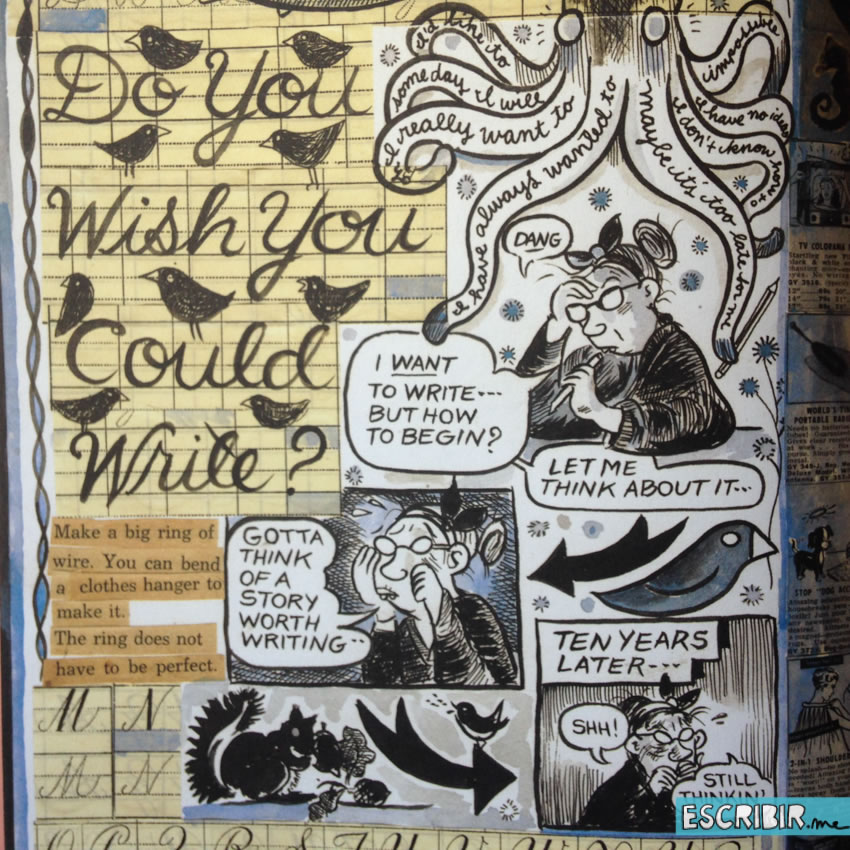 Do You
Wish You
Could
Write?
I'd like to
someday I will
I really want to
I have always wanted to
maybe it's too late for me
I don't know how to
I have no idea
impossible
DANG
I WANT
TO WRITE---
BUT HOW
TO BEGIN?
LET ME
THINK ABOUT IT...
Make a big ring of
wire. You can bend
a clothes hanger to
make it.
The ring does not
have to be perfect.
GOTTA
THINK
OF A
STORY
WORTH
WRITING--
TEN YEARS
LATER---
SHH!
STILL
THINKIN'!
M N
M N
TV COLORAMA
PORTABLE RADIO
STOP
2-IN-1 SHOULDER
ESCRIBIR.me